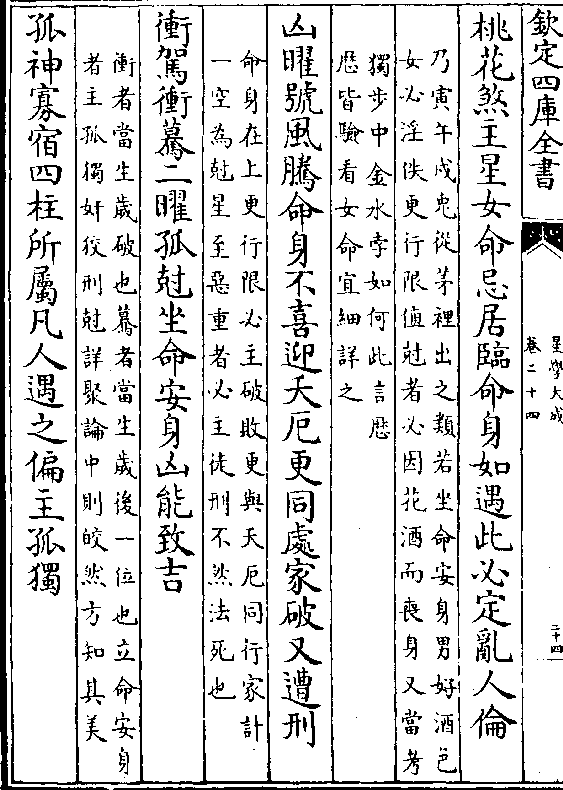 欽定四庫全書
星學大成
卷二十四
二十四
桃花煞主星女命忌居臨命身如遇此必定亂人倫
乃寅午戌兎從茅裡出之類若坐命安身男好酒色
女必淫佚更行限值尅者必因花酒而喪身又當考
獨步中金水孛如何此言歴
歴皆驗看女命宜細詳之
凶曜號風騰命身不喜迎天厄更同處家破又遭刑
命身在上更行限必主破敗更與天厄同行家計
一空為尅星至惡重者必主徒刑不然法死也
衝駕衝驀二曜孤尅坐命安身凶能致吉
衝者當生歲破也驀者當生歲後一位也立命安身
者主孤獨奸狡刑尅詳聚論中則皎然方知其美
孤神寡宿四柱所屬凡人遇之偏主孤獨